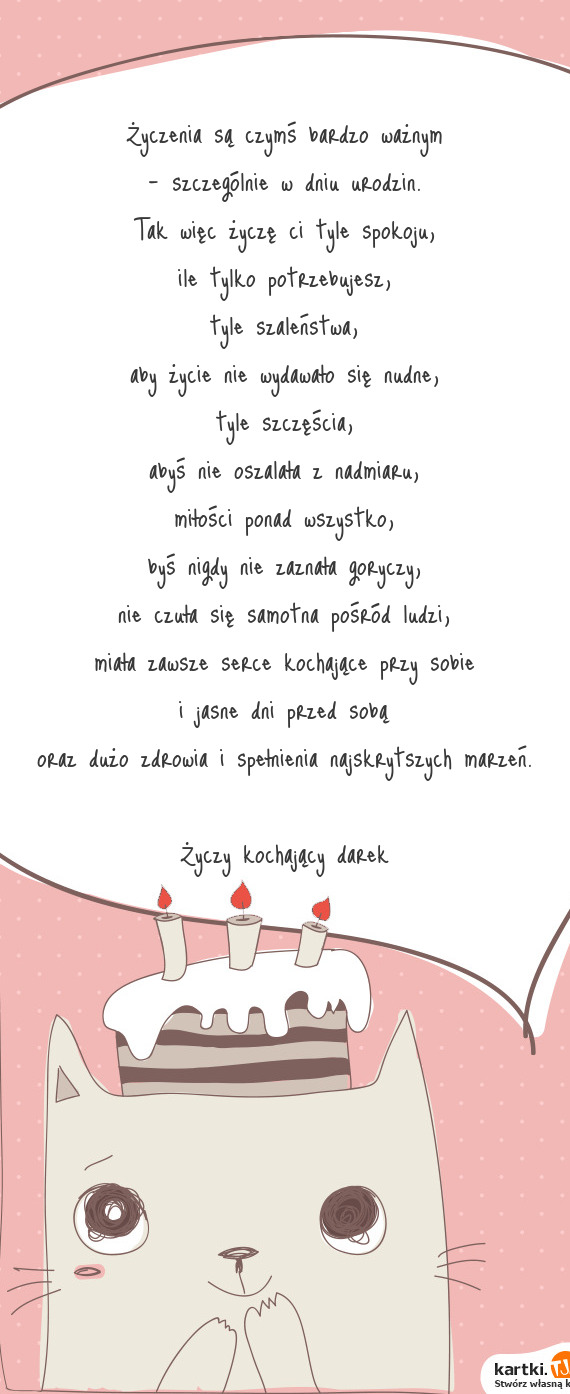 Życzenia są czymś bardzo ważnym
- szczególnie w dniu urodzin.
Tak więc życzę ci tyle spokoju,
ile tylko potrzebujesz,
tyle szaleństwa,
aby życie nie wydawało się nudne,
tyle szczęścia,
abyś nie oszalała z nadmiaru,
miłości ponad wszystko,
byś nigdy nie zaznała goryczy,
nie czuła się samotna pośród ludzi,
miała zawsze serce kochające przy sobie
i jasne dni przed sobą
oraz dużo zdrowia i spełnienia najskrytszych marzeń.
Życzy kochający darek
kartki.TJ
Stwórz własną k